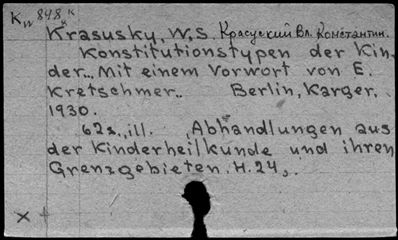 K„848"
Krasusky, W.S. Красуский Вл. Константин.
Konstitutionstypen der Kin-
der.. Mit einem Vorwort von E.
Kretschmer.. Berlin, Karger,
1930.
62s., ill. „Abhandlungen aus
der Kinderheilkunde und ihren
Grenzgebieten. H.24„.